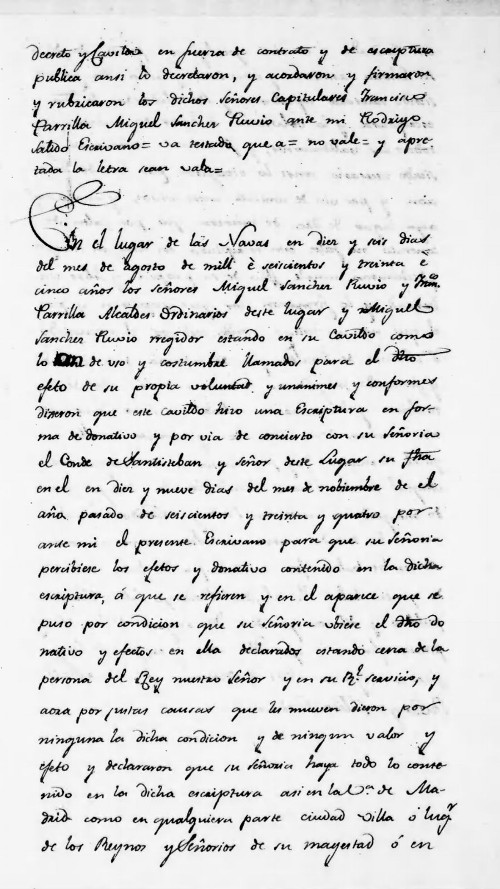 decreto y Cavildo en fuerza de contrato y de escriptura
publica ansi lo decretaron, y acordaron y firmaron
y rubricaron los dichos Señores Capitulares Francisco
Parrilla Miguel Sanchez Ruvio ante mi Rodrigo
Salido Escrivano= va testado que a= no vale= y apre-
tada la letra sean vala=
En el lugar de las Navas en diez y seis dias
del mes de agosto de mill è seiscientos y treinta è
cinco años los señores Miguel Sanchez Ruvio y Fran.co
Parrilla Alcaldes Ordinarios deste lugar y Miguel
Sanchez Ruvio rregidor estando en su Cavildo como
lo de uso y costumbre llamados para el dho
efeto de su propia voluntad y unanimes y conformes
dixeron que este cavildo hizo una Escriptura en for-
ma de donativo y por via de concierto con su señoria
el Conde de Santisteban y señor deste Lugar su fha
en el en diez y nueve dias del mes de nobiembre de el
año pasado de seiscientos y treinta y quatro por
ante mi el presente Escrivano para que su Señoria
percibiese los efetos y donativo contenido en la dicha
escriptura, á que se refieren y en el aparece que se
puso por condicion que su señoria ubiese el dho do
nativo y efectos en ella declarados estando cerca de la
persona del Rey nuestro Señor y en su R.l servicio, y
aora por justas causas que les mueven dieron por
ninguna la dicha condicion y de ningun valor y
efeto y declararon que su señoria haya todo lo conte-
nido en la dicha escriptura asi en la V.a de Ma-
drid como en qualquiera parte ciudad villa ó lugr
de los Reynos y Señorios de su magestad ó en